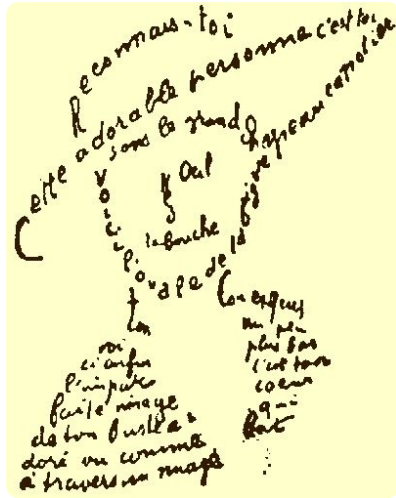 Reconnais-toi
Cette adorable personne c'est toi
sous le grand chapeau canotier
Oeil
la bouche
Voici l'ovale de ta figure
ton
cou exquis
voi
ci enfin
l'impar
faite image
de ton buste a
doré vu comme
à travers un nuage
un peu
plus bas
c'est ton
coeur
qui
bat